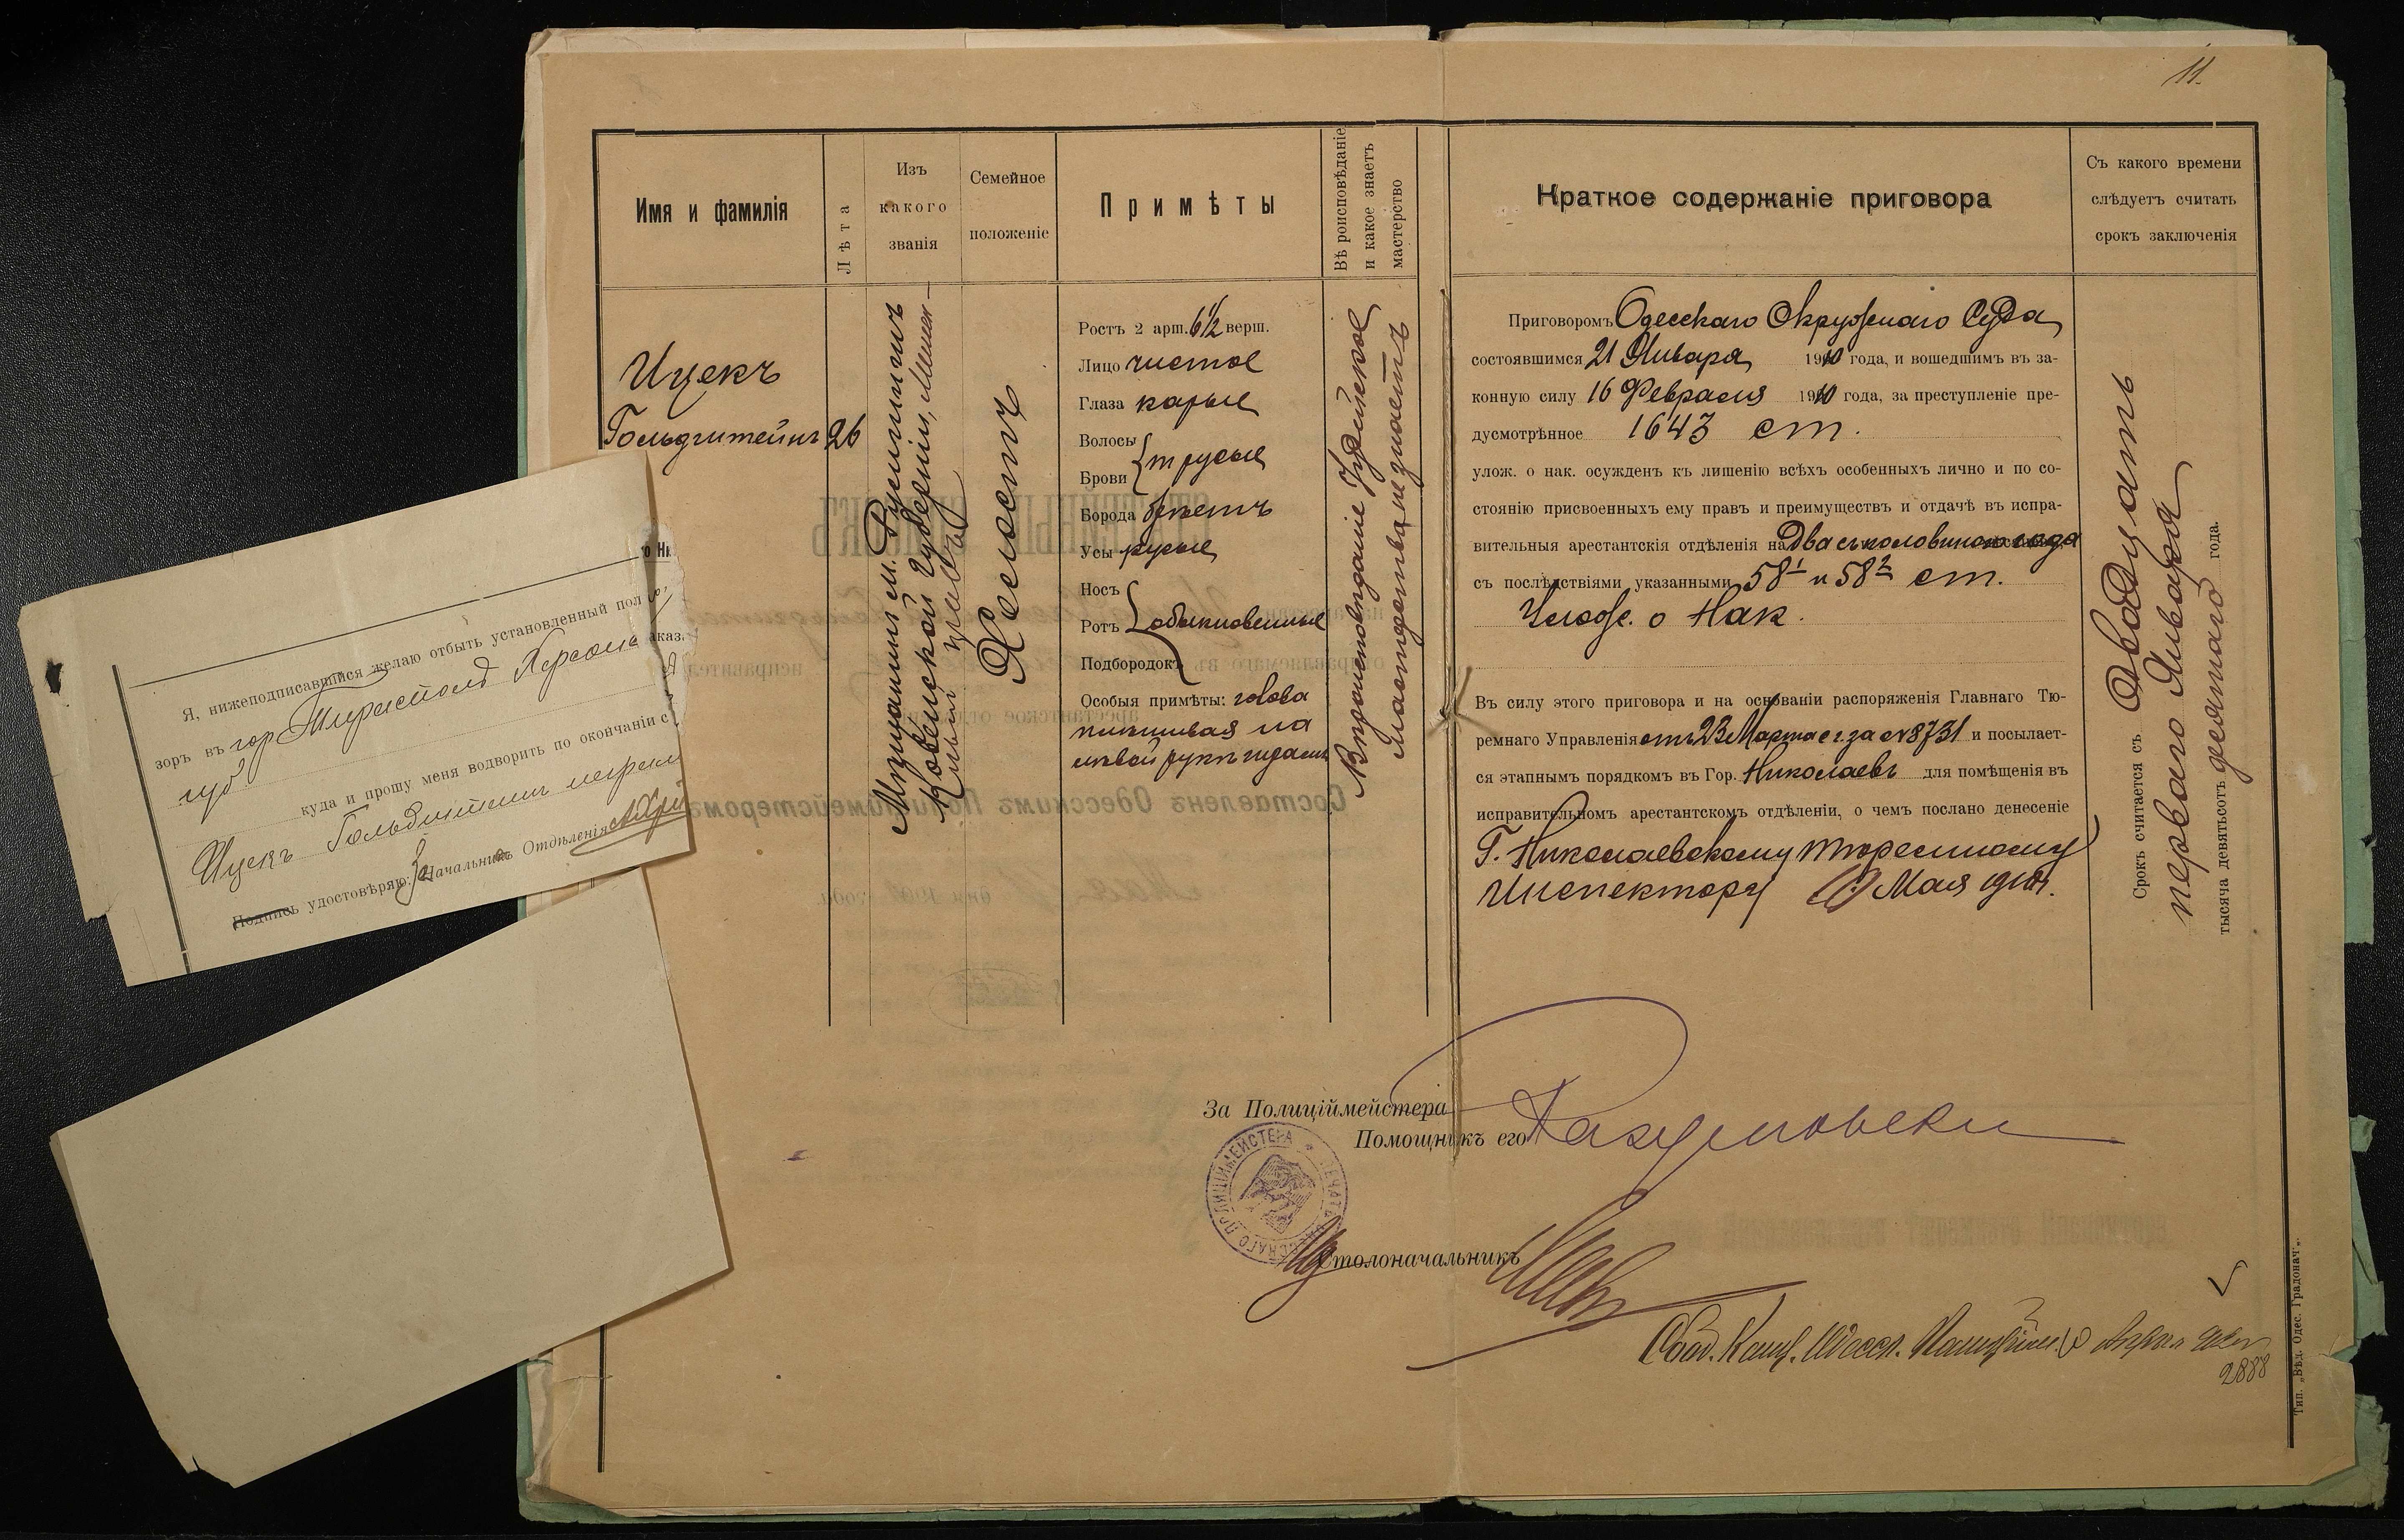 11.
Имя и фамилія
Лѣта
Изъ
какого
званія
Семейное
положеніе
Примѣты
Вѣроисповѣданіе
и какое знаетъ
мастерство
Краткое содержаніе приговора
Съ какого времени
слѣдуетъ считать
срокъ заключенія
Ицекъ
Гольдштейнъ
26
Мѣщанинъ м.
Ковенской губерніи,
Холостъ
Ростъ 2 арш. 6½ верш.
Лицо чистое
Глаза карые
Волосы
Брови
т русые
Борода брѣетъ
Усы русые
Носъ
Ротъ
Подбородокъ
обыкновенные
Особыя примѣты: голова
плѣшивая на
лѣвой рукѣ шрамъ
Вѣроисповѣданіе Іудейское
мастерства не знаетъ
Приговоромъ Одесскаго Окружнаго Суда
состоявшимся 21 Января 1910 года, и вошедшимъ въ за-
конную силу 16 Февраля 1910 года, за преступленіе пре-
дусмотрѣнное 1643 ст.
улож. о нак. осужденъ къ лишенію всѣхъ особенныхъ лично и по со-
стоянію присвоенныхъ ему правъ и преимуществъ и отдачѣ въ испра-
вительныя арестантскія отдѣленія на два съ половиною года
съ послѣдствіями указанными 58¹ и 58² ст.
Улож. о Нак.
Въ силу этого приговора и на основаніи распоряженія Главнаго Тю-
ремнаго Управленія отъ 23 Марта с.г. за № 8731 и посылает-
ся этапнымъ порядкомъ въ Гор. Николаевъ для помѣщенія въ
исправительномъ арестантскомъ отдѣленіи, о чемъ послано денесеніе
Г. Николаевскому тюремному
Инспектору Мая 1910 г.
Срокъ считается съ Двадцать
перваго Января
тысяча девятьсот десятаго года.
За Полиціймейстера
Помощникъ его
Столоначальникъ
2888
Тип. „Вѣд. Одес. Градонач.“.
Я, нижеподписавшійся желаю отбыть установленный
зоръ въ гор Тирасполѣ Херсонс
губ.
куда и прошу меня водворить по окончаніи с
Ицекъ Гольдштейнъ неграм
Подпись удостовѣряю: За Начальникъ Отдѣленія
Составленъ Одесскимъ Полиціймейстеромъ